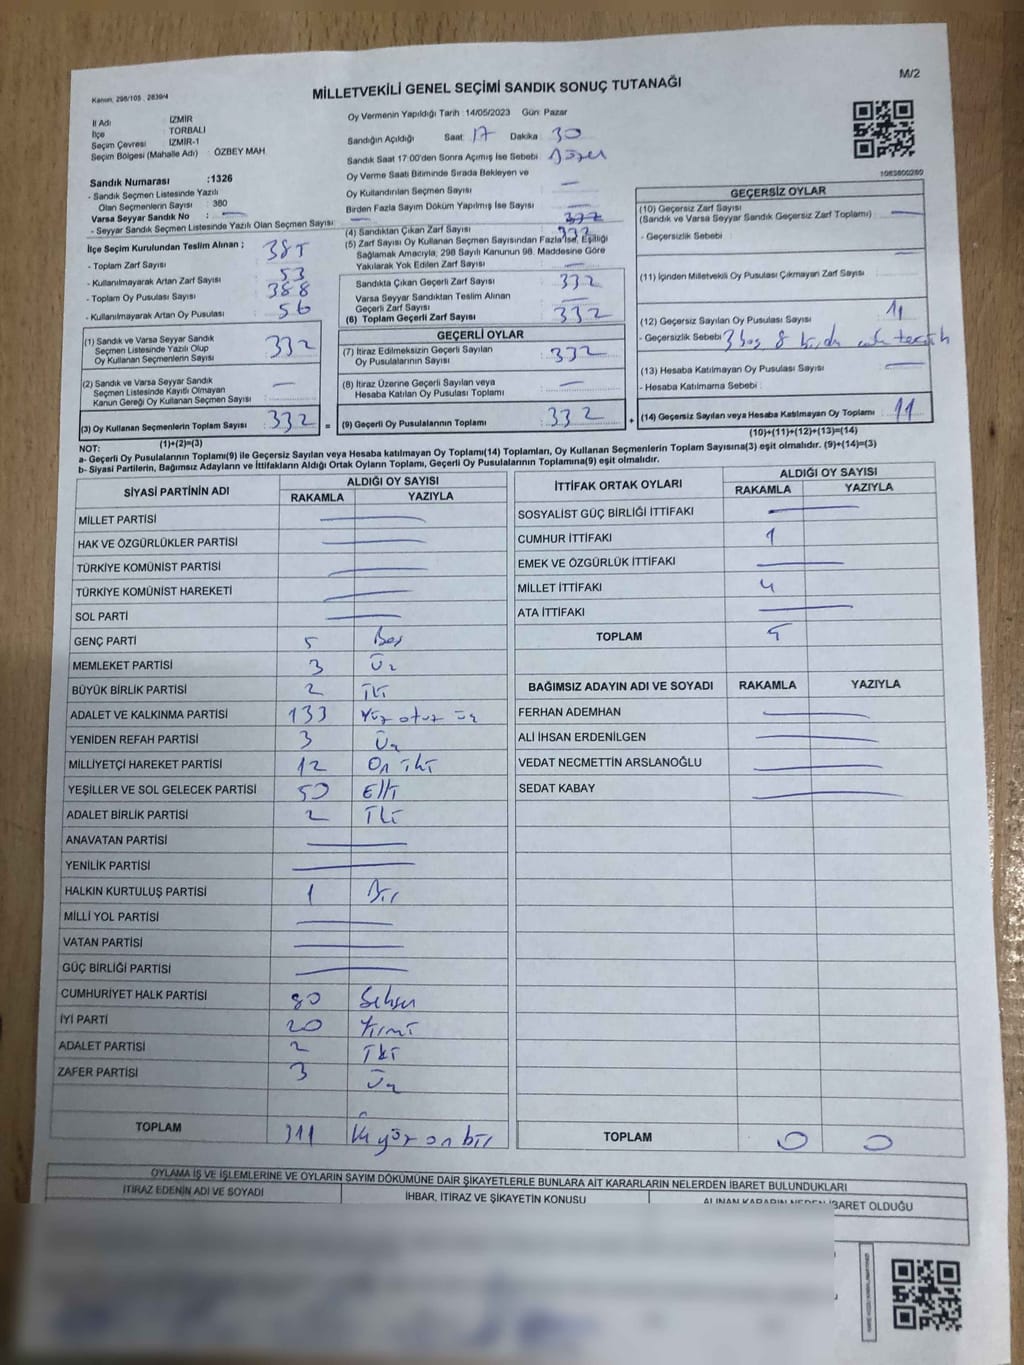 M/2
Kanun: 298/105 , 2839/4
MİLLETVEKİLİ GENEL SEÇİMİ SANDIK SONUÇ TUTANAĞI
İl Adı : İZMİR
İlçe : TORBALI
Seçim Çevresi : İZMİR-1
Seçim Bölgesi (Mahalle Adı) : ÖZBEY MAH
Sandık Numarası :1326
- Sandık Seçmen Listesinde Yazılı
Olan Seçmenlerin Sayısı : 380
Varsa Seyyar Sandık No : —
- Seyyar Sandık Seçmen Listesinde Yazılı Olan Seçmen Sayısı : —
İlçe Seçim Kurulundan Teslim Alınan ;
- Toplam Zarf Sayısı : 385
- Kullanılmayarak Artan Zarf Sayısı : 53
- Toplam Oy Pusulası Sayısı : 388
- Kullanılmayarak Artan Oy Pusulası : 56
(1) Sandık ve Varsa Seyyar Sandık
Seçmen Listesinde Yazılı Olup
Oy Kullanan Seçmenlerin Sayısı : 332
(2) Sandık ve Varsa Seyyar Sandık
Seçmen Listesinde Kayıtlı Olmayan
Kanun Gereği Oy Kullanan Seçmen Sayısı : —
(3) Oy Kullanan Seçmenlerin Toplam Sayısı : 332 =
(1)+(2)=(3)
Oy Vermenin Yapıldığı Tarih :14/05/2023 Gün: Pazar
Sandığın Açıldığı Saat: 17 Dakika : 30
Sandık Saat 17:00'den Sonra Açımış İse Sebebi :
Oy Verme Saati Bitiminde Sırada Bekleyen ve
Oy Kullandırılan Seçmen Sayısı : —
Birden Fazla Sayım Döküm Yapılmış İse Sayısı : —
(4) Sandıktan Çıkan Zarf Sayısı : 332
(5) Zarf Sayısı Oy Kullanan Seçmen Sayısından Fazla İse, Eşitliği
Sağlamak Amacıyla, 298 Sayılı Kanunun 98. Maddesine Göre
Yakılarak Yok Edilen Zarf Sayısı : —
Sandıkta Çıkan Geçerli Zarf Sayısı : 332
Varsa Seyyar Sandıktan Teslim Alınan
Geçerli Zarf Sayısı : —
(6) Toplam Geçerli Zarf Sayısı : 332
GEÇERLİ OYLAR
(7) İtiraz Edilmeksizin Geçerli Sayılan
Oy Pusulalarının Sayısı : 332
(8) İtiraz Üzerine Geçerli Sayılan veya
Hesaba Katılan Oy Pusulası Toplamı : —
(9) Geçerli Oy Pusulalarının Toplamı : 332 +
1083800280
GEÇERSİZ OYLAR
(10) Geçersiz Zarf Sayısı
(Sandık ve Varsa Seyyar Sandık Geçersiz Zarf Toplamı) : —
- Geçersizlik Sebebi :
(11) İçinden Milletvekili Oy Pusulası Çıkmayan Zarf Sayısı : —
(12) Geçersiz Sayılan Oy Pusulası Sayısı : 11
- Geçersizlik Sebebi : 3 boş 8
(13) Hesaba Katılmayan Oy Pusulası Sayısı : —
- Hesaba Katılmama Sebebi :
(14) Geçersiz Sayılan veya Hesaba Katılmayan Oy Toplamı : 11
(10)+(11)+(12)+(13)=(14)
NOT:
a- Geçerli Oy Pusulalarının Toplamı(9) ile Geçersiz Sayılan veya Hesaba katılmayan Oy Toplamı(14) Toplamları, Oy Kullanan Seçmenlerin Toplam Sayısına(3) eşit olmalıdır. (9)+(14)=(3)
b- Siyasi Partilerin, Bağımsız Adayların ve İttifakların Aldığı Ortak Oyların Toplamı, Geçerli Oy Pusulalarının Toplamına(9) eşit olmalıdır.
SİYASİ PARTİNİN ADI ALDIĞI OY SAYISI
RAKAMLA YAZIYLA
MİLLET PARTİSİ —
HAK VE ÖZGÜRLÜKLER PARTİSİ —
TÜRKİYE KOMÜNİST PARTİSİ —
TÜRKİYE KOMÜNİST HAREKETİ —
SOL PARTİ —
GENÇ PARTİ 5 Beş
MEMLEKET PARTİSİ 3 Üç
BÜYÜK BİRLİK PARTİSİ 2 İki
ADALET VE KALKINMA PARTİSİ 133 Yüz otuz üç
YENİDEN REFAH PARTİSİ 3 Üç
MİLLİYETÇİ HAREKET PARTİSİ 12 On iki
YEŞİLLER VE SOL GELECEK PARTİSİ 50 Elli
ADALET BİRLİK PARTİSİ 2 İki
ANAVATAN PARTİSİ —
YENİLİK PARTİSİ —
HALKIN KURTULUŞ PARTİSİ 1 Bir
MİLLİ YOL PARTİSİ —
VATAN PARTİSİ —
GÜÇ BİRLİĞİ PARTİSİ —
CUMHURİYET HALK PARTİSİ 80 Seksen
İYİ PARTİ 20 Yirmi
ADALET PARTİSİ 2 İki
ZAFER PARTİSİ 3 Üç
TOPLAM 311 Üçyüz on bir
İTTİFAK ORTAK OYLARI ALDIĞI OY SAYISI
RAKAMLA YAZIYLA
SOSYALİST GÜÇ BİRLİĞİ İTTİFAKI —
CUMHUR İTTİFAKI 1
EMEK VE ÖZGÜRLÜK İTTİFAKI —
MİLLET İTTİFAKI 4
ATA İTTİFAKI —
TOPLAM 5
BAĞIMSIZ ADAYIN ADI VE SOYADI RAKAMLA YAZIYLA
FERHAN ADEMHAN —
ALİ İHSAN ERDENİLGEN —
VEDAT NECMETTİN ARSLANOĞLU —
SEDAT KABAY —
TOPLAM 0 0
OYLAMA İŞ VE İŞLEMLERİNE VE OYLARIN SAYIM DÖKÜMÜNE DAİR ŞİKAYETLERLE BUNLARA AİT KARARLARIN NELERDEN İBARET BULUNDUKLARI
İTİRAZ EDENİN ADI VE SOYADI İHBAR, İTİRAZ VE ŞİKAYETİN KONUSU ALINAN KARARIN NEDEN İBARET OLDUĞU